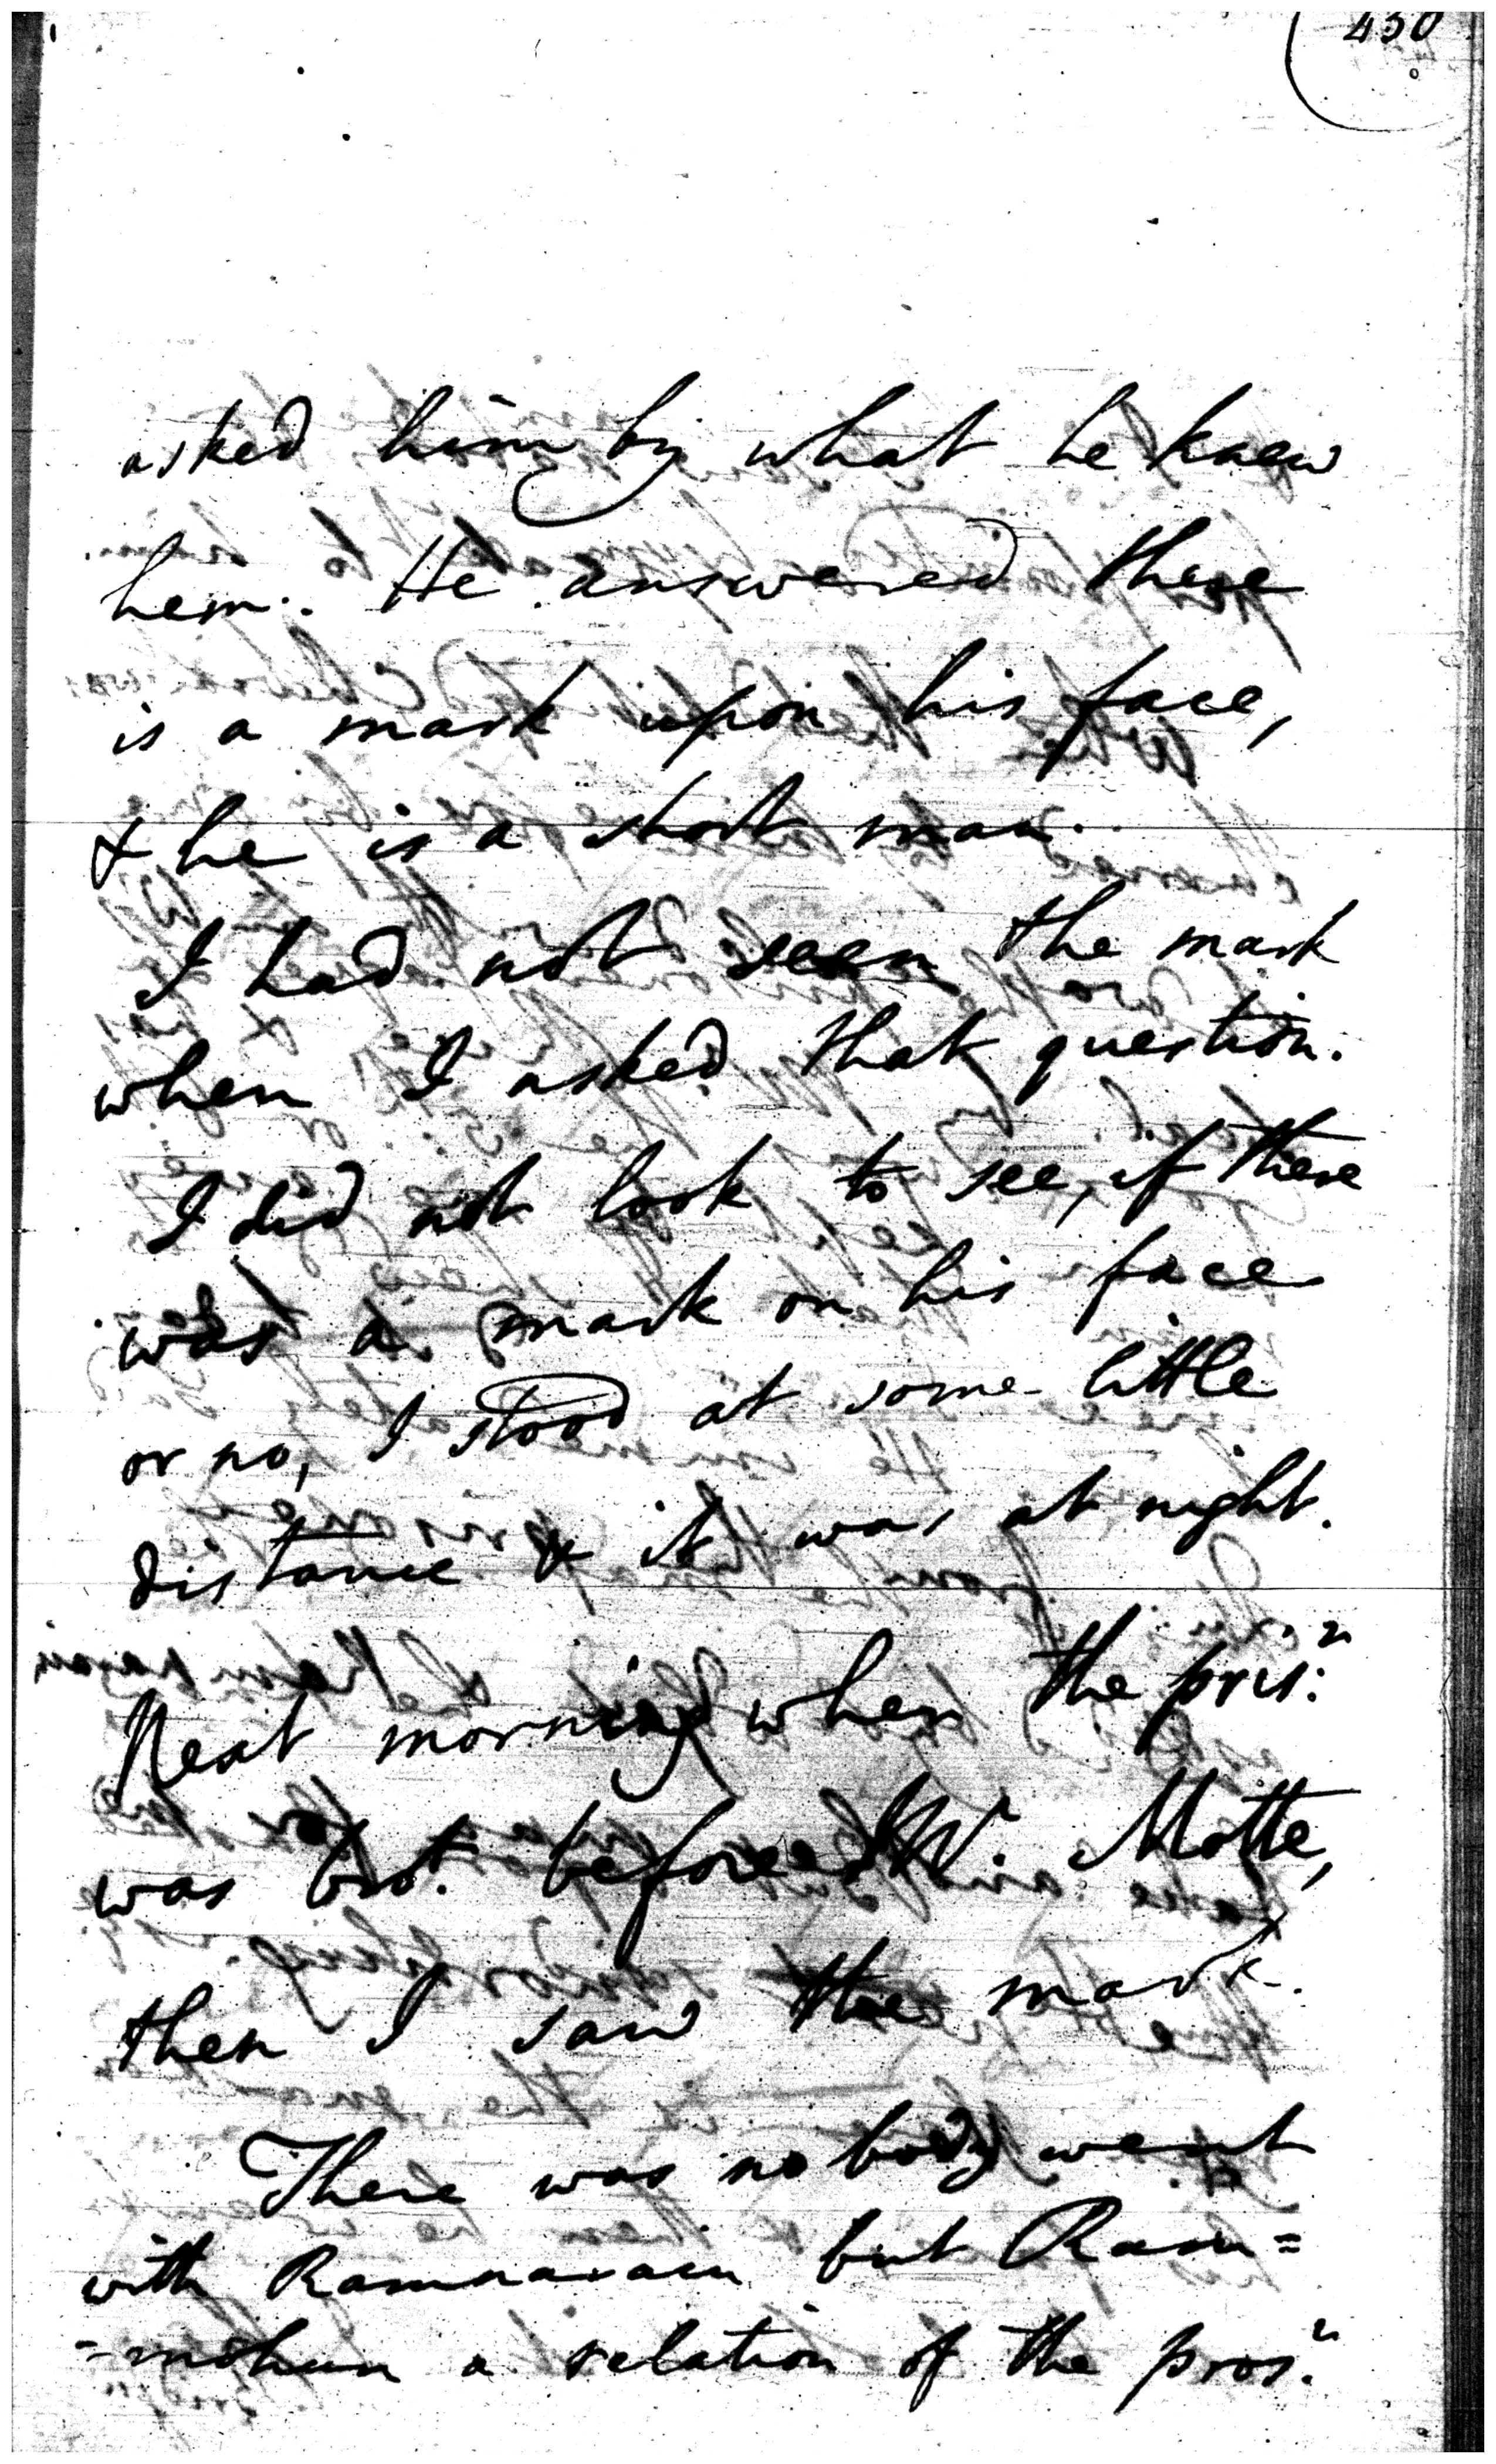 430
asked him by what he knew
hem. He answered there
is a mark upon his face,
& he is a short man.
I had not seen the mark
when I asked that question.
I did not look to see, if there
was a mark on his face
or no, I stood at some little
distance & it was at night.
Next morning when the pris:n
was bro.t before Mr. Motte,
then I saw the mark.
There was no body went
with Ramnarain but Ram=
-mohun a relation of the pros:r